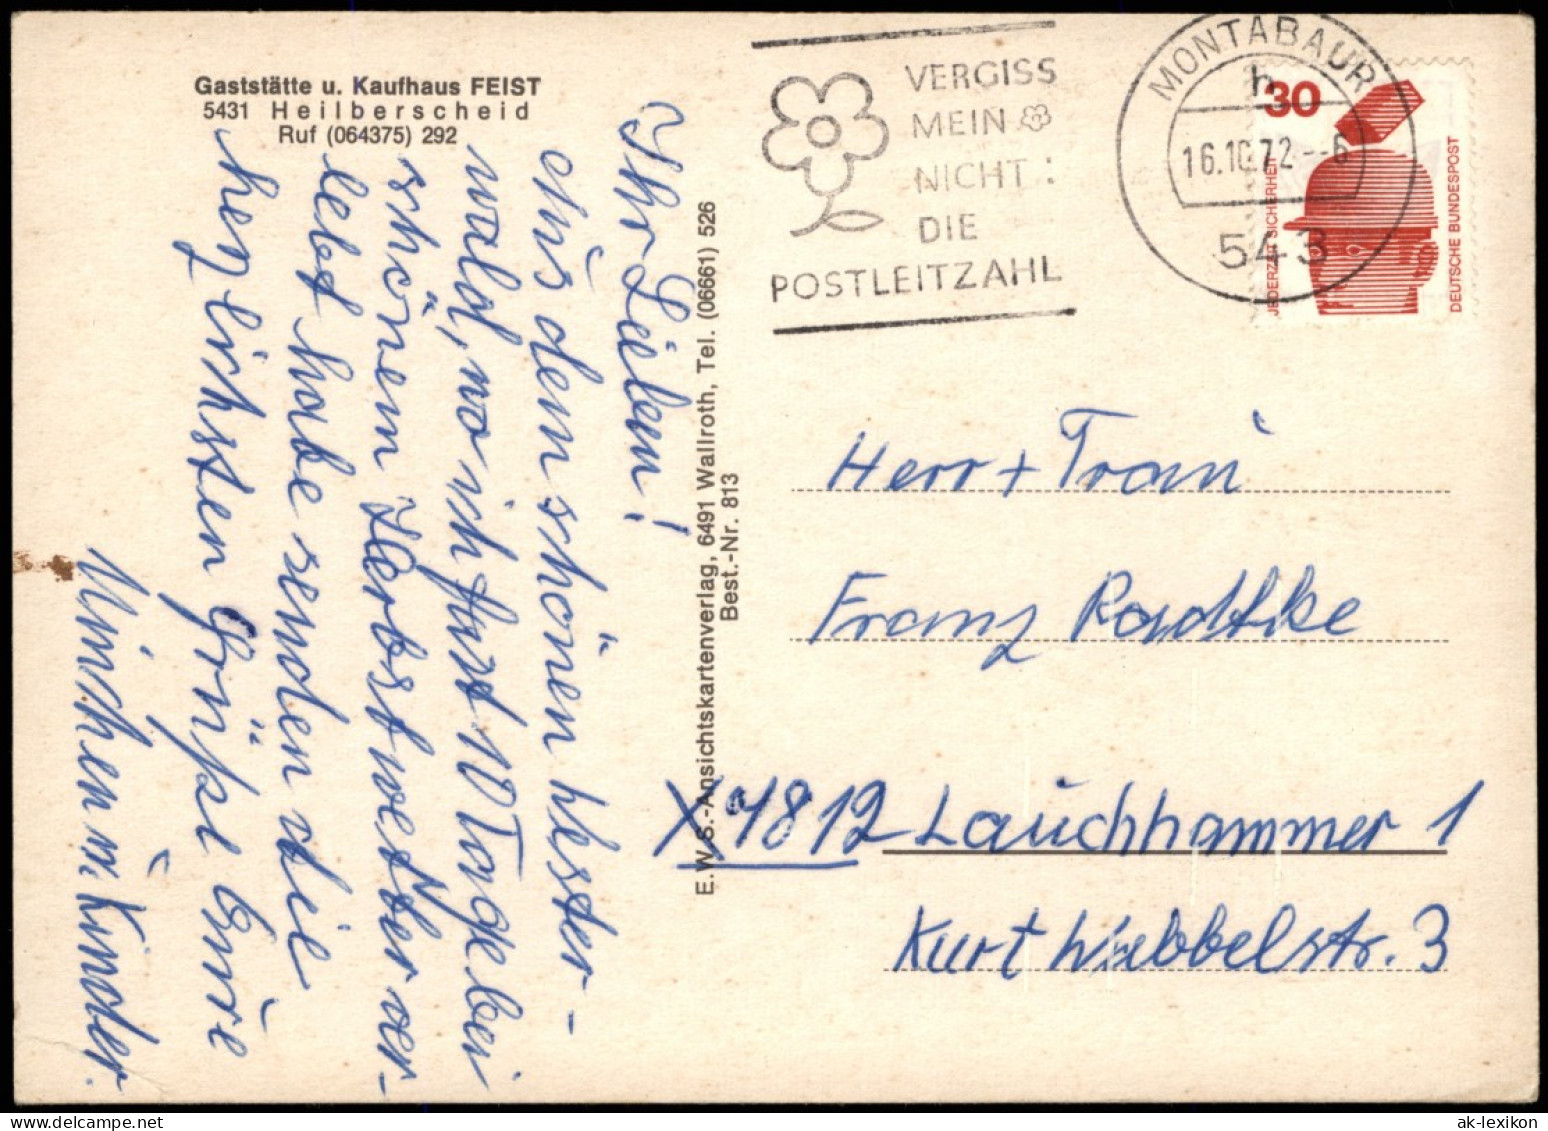 Gaststätte u. Kaufhaus FEIST
5431 Heilberscheid
Ruf (064375) 292
VERGISS
MEIN
NICHT:
DIE
POSTLEITZAHL
MONTABAUR
h
16.10.72--6
543
30
JEDERZEIT SICHERHEIT
DEUTSCHE BUNDESPOST
E.W.S.-Ansichtskartenverlag, 6491 Wallroth, Tel. (06661) 526
Best.-Nr. 813
Ihr Lieben!
aus dem schönen Wester-
wald, wo ich fast 10 Tage bei
schönem Herbstwetter ver-
lebt habe senden die
herzlichsten Grüße Eure
Minchen u. Kinder.
Herr + Frau
Franz Radtke
X 7812 Lauchhammer 1
Kurt Wabbelstr. 3
ak-lexikon